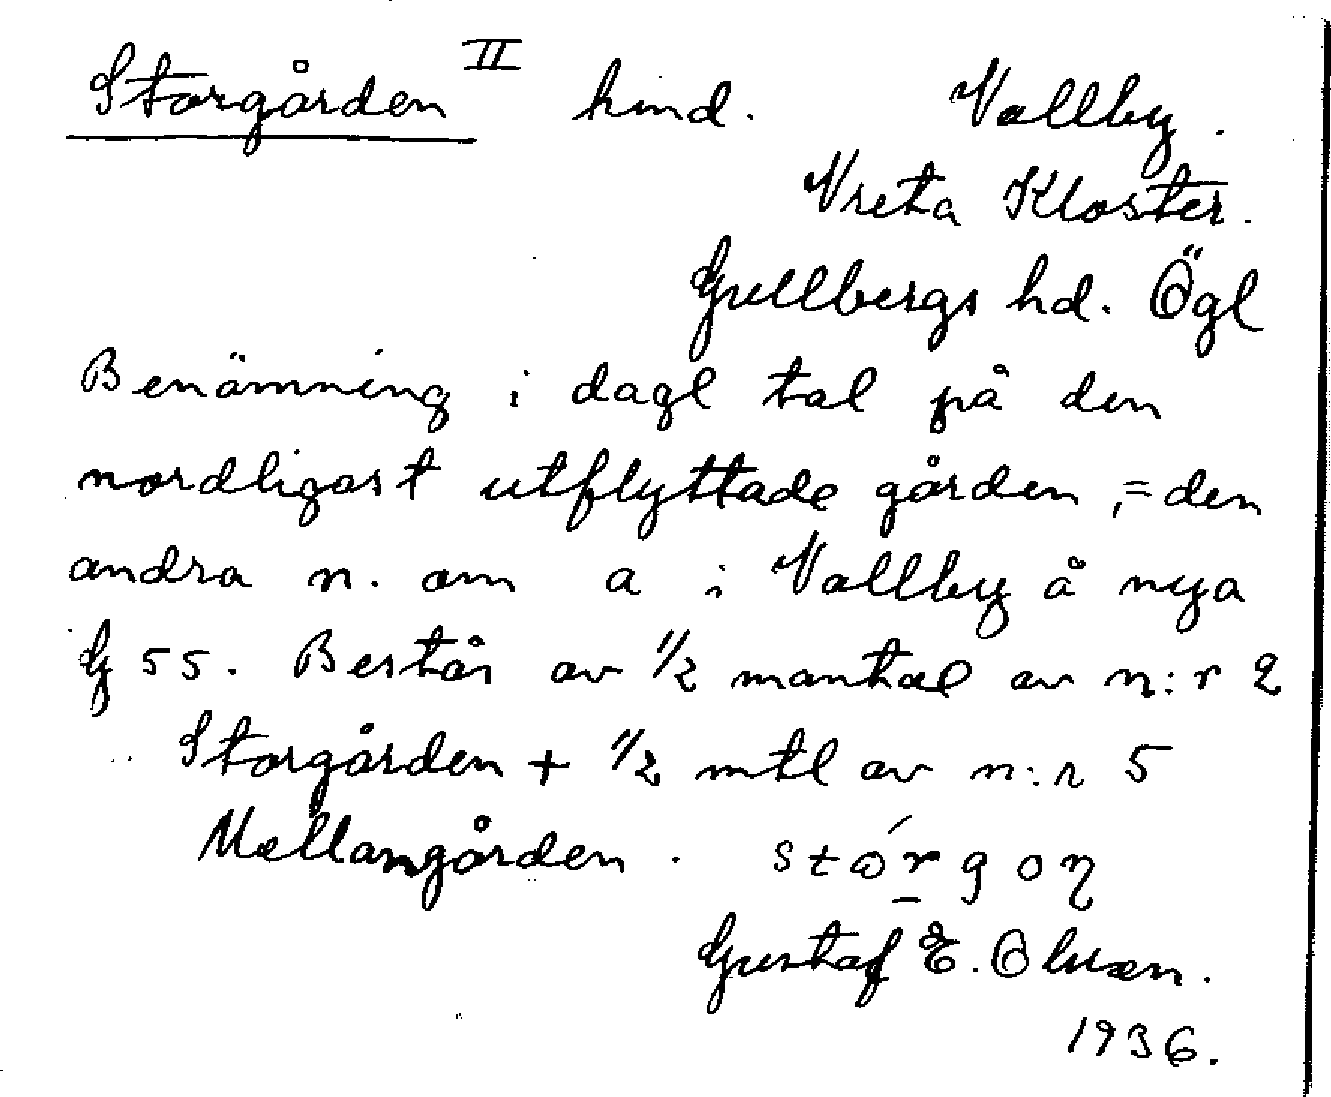 Storgården II hmd. Vallby.
Vreta Kloster.
Gullbergs hd. Ögl
Benämning i dagl tal på den
nordligast utflyttade gården, = den
andra n. om a i Vallby å nya
G 55. Består av 1/2 mantal av n:r 2
Storgården + 1/2 mtl av n:r 5
Mellangården.
Gustaf E. Olsson.
1936.